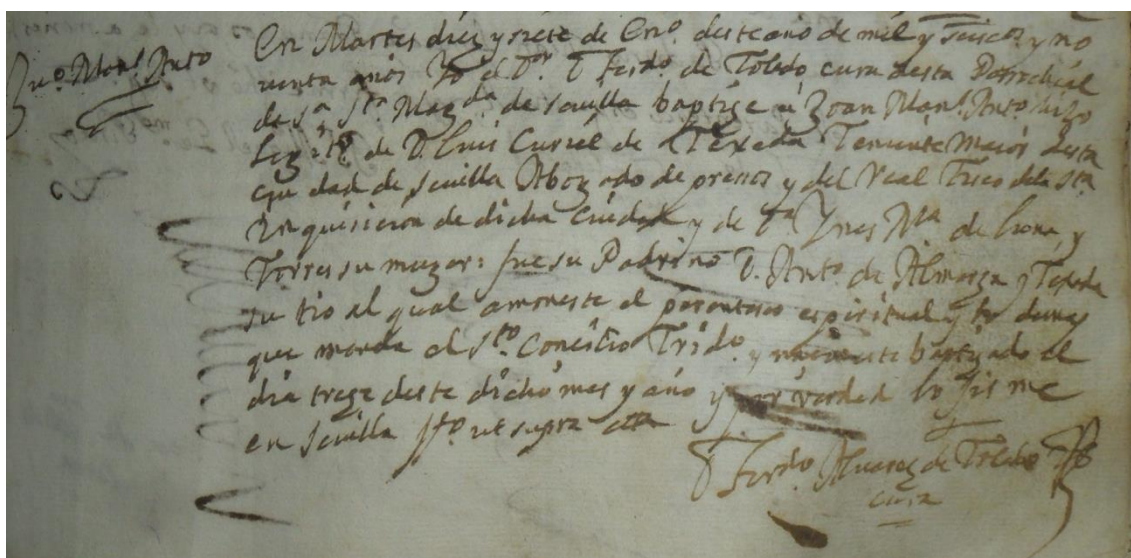 Juo. Manl. Anto
En Martes diez y siete de Eno. deste año de mil y seiscos. y no
uenta años Yo el Dor. D ferdo. de Toledo cura desta Parrochial
de sa. sta. Magda. de seuilla baptize a Joan Manl. Anto. hijo
legitº de D. Luis Curiel de Texada Teniente Maior desta
ciudad de seuilla Abogado de presos y del Real fisco dela sta.
Inquisicion de dicha Ciudad y de Da Ynes Ma de Luna y
Torres su muger: fue su Padrino D. Anto. de Almarza y Texada
su tio al qual amoneste el parentesco espiritual y lo demas
que manda el sto. Concilio Trido. y
dia treze deste dicho mes y año y por verdad lo firme
en seuilla fto. ut supra
D ferdo. Aluarez de Toledo
cura